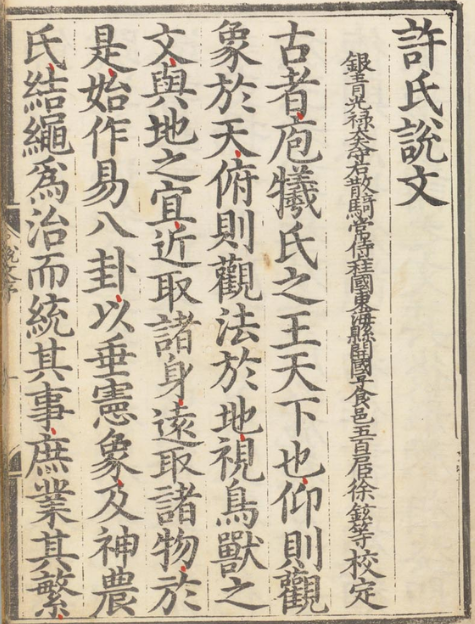 許氏說文
銀青光禄大夫守右散騎常侍柱國東海縣開國子食邑五百戶臣徐鉉等校定
古者庖犧氏之王天下也仰則觀
象於天俯則觀法於地視鳥獸之
文與地之宜近取諸身遠取諸物於
是始作易八卦以垂憲象及神農
氏結繩爲治而統其事庶業其繁
說文序